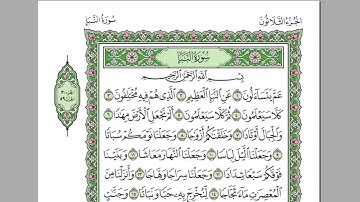 الجزء الثلاثون
سورة النبأ
سورة النبأ
بسم الله الرحمن الرحيم
عم يتساءلون ١ عن النبإ العظيم ٢ الذي هم فيه مختلفون ٣
كلا سيعلمون ٤ ثم كلا سيعلمون ٥ ألم نجعل الأرض مهدا ٦
والجبال أوتادا ٧ وخلقناكم أزواجا ٨ وجعلنا نومكم سباتا
٩ وجعلنا الليل لباسا ١٠ وجعلنا النهار معاشا ١١ وبنينا
فوقكم سبعا شدادا ١٢ وجعلنا سراجا وهاجا ١٣ وأنزلنا من
المعصرات ماء ثجاجا ١٤ لنخرج به حبا ونباتا ١٥ وجنات